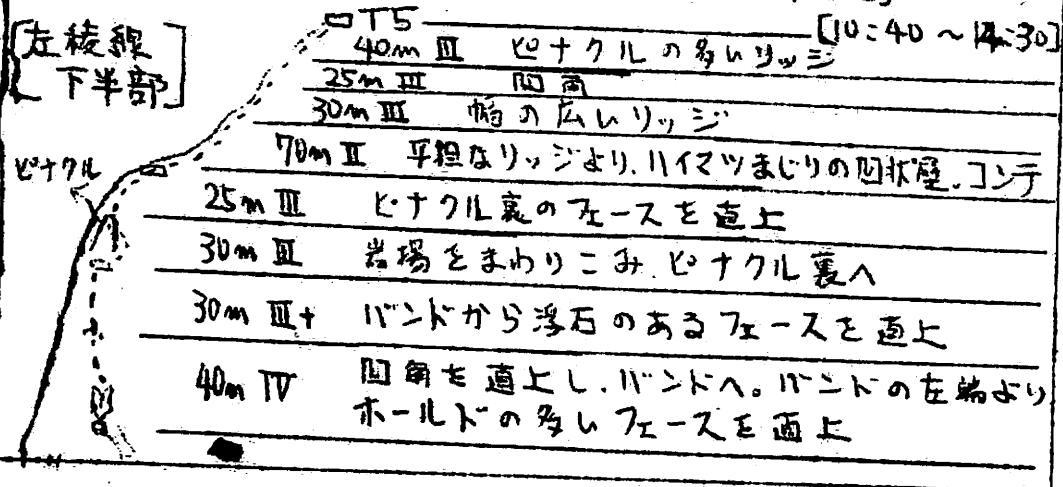 [左稜線
下半部]
T5
[10:40 ~ 14:30]
40m III ピナクルの多いリッジ
25m III 凹角
30m III 幅の広いリッジ
70m II 平担なリッジより、ハイマツまじりの凹状壁、コンテ
ピナクル
25m III ピナクル裏のフェースを直上
30m III 岩場をまわりこみ、ピナクル裏へ
30m III+ バンドから浮石のあるフェースを直上
40m IV 凹角を直上し、バンドへ。バンドの左端より
ホールドの多いフェースを直上